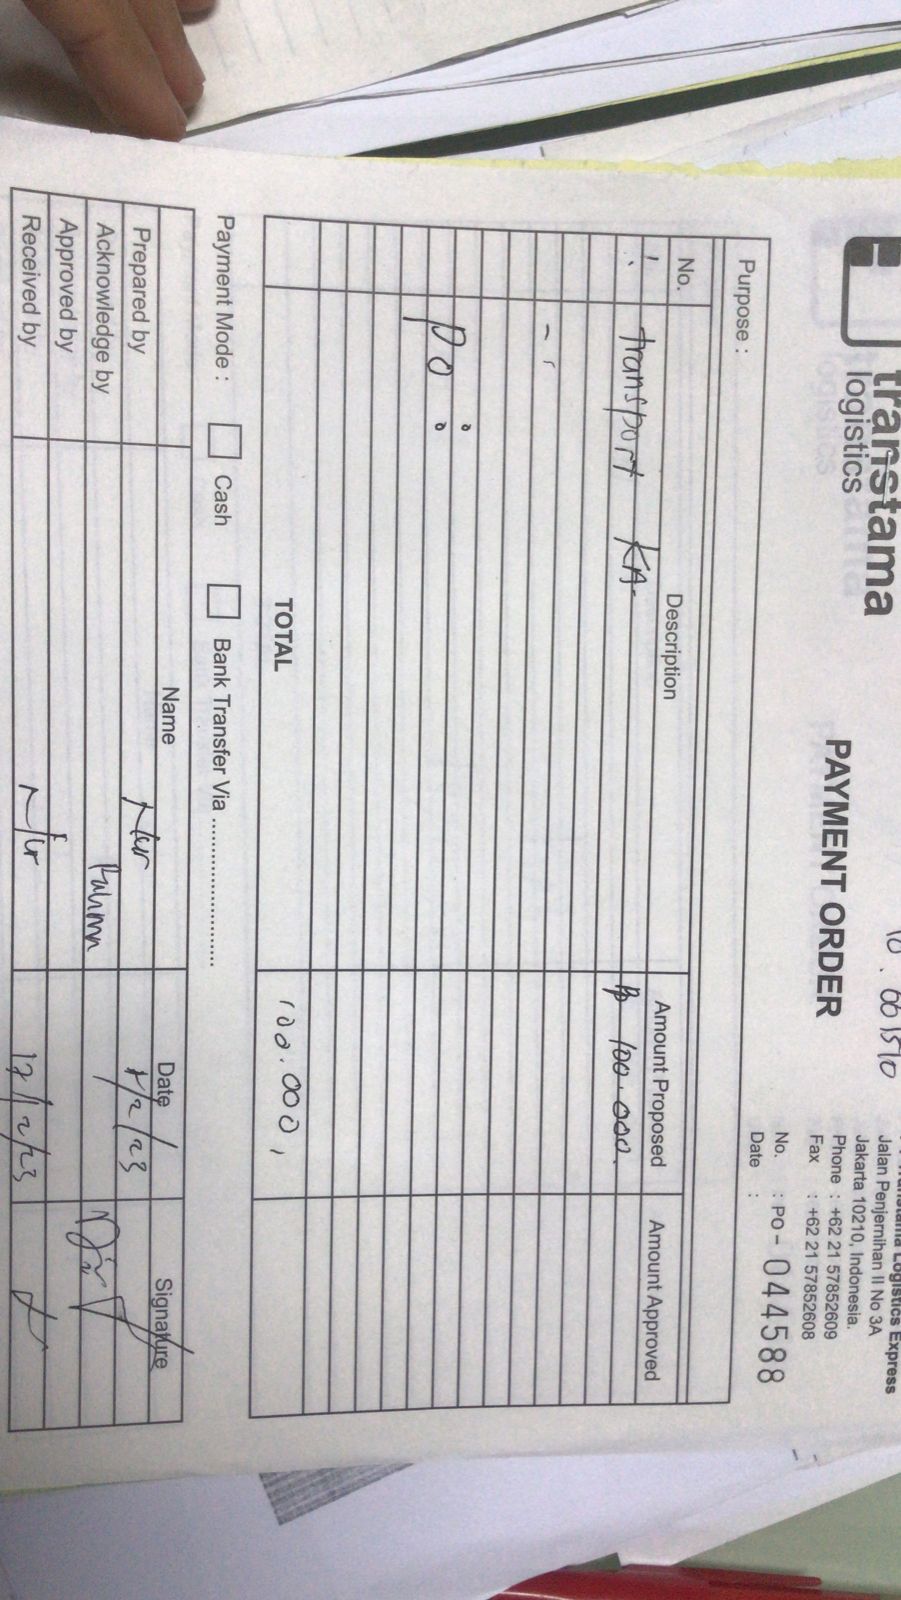 transtama
logistics
10.001510
Logistics Express
Jalan Penjernihan II No 3A
Jakarta 10210, Indonesia.
Phone : +62 21 57852609
Fax : +62 21 57852608
PAYMENT ORDER
No. : PO - 044588
Date :
Purpose :
No. Description Amount Proposed Amount Approved
1. Transport KA- Rp 100.000.
PO :
TOTAL 100.000,
Payment Mode : Cash Bank Transfer Via ........................
Name Date Signature
Prepared by Nur /2/23
Acknowledge by
Approved by
Received by Nur 17/2/23